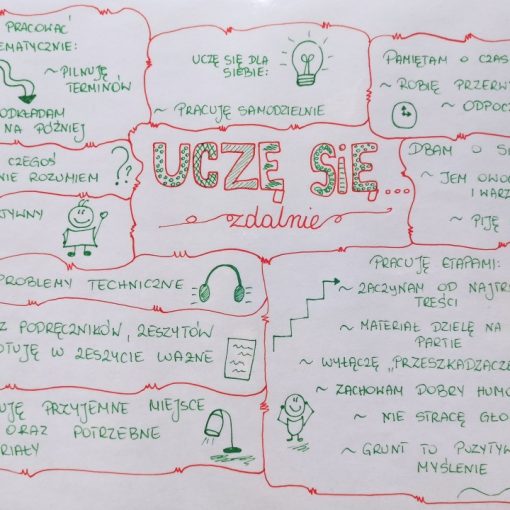 PRACOWAĆ
EMATYCZNIE:
~ PILNUJĘ
TERMINÓW
ODKŁADAM
NA PÓŹNIEJ
UCZĘ SIĘ DLA
SIEBIE:
~ PRACUJĘ SAMODZIELNIE
PAMIĘTAM O CZAS
~ ROBIĘ PRZERW
~ ODPOC
CZEGOŚ
NIE ROZUMIEM
??
UCZĘ SIĘ...
zdalnie
DBAM O SI
~ JEM OWOC
I WARZ
~ PIJĘ
TYWNY
PROBLEMY TECHNICZNE
Z PODRĘCZNIKÓW, ZESZYTÓW
OTUJĘ W ZESZYCIE WAŻNE
UJĘ PRZYJEMNE MIEJSCE
ORAZ POTRZEBNE
RIAŁY
PRACUJĘ ETAPAMI:
~ ZACZYNAM OD NAJTR
TREŚCI
~ MATERIAŁ DZIELĘ NA
PARTIE
~ WYŁĄCZĘ „PRZESZKADZACZE
~ ZACHOWAM DOBRY HUMO
~ NIE STRACĘ GŁO
~ GRUNT TO POZYTYW
MYŚLENIE